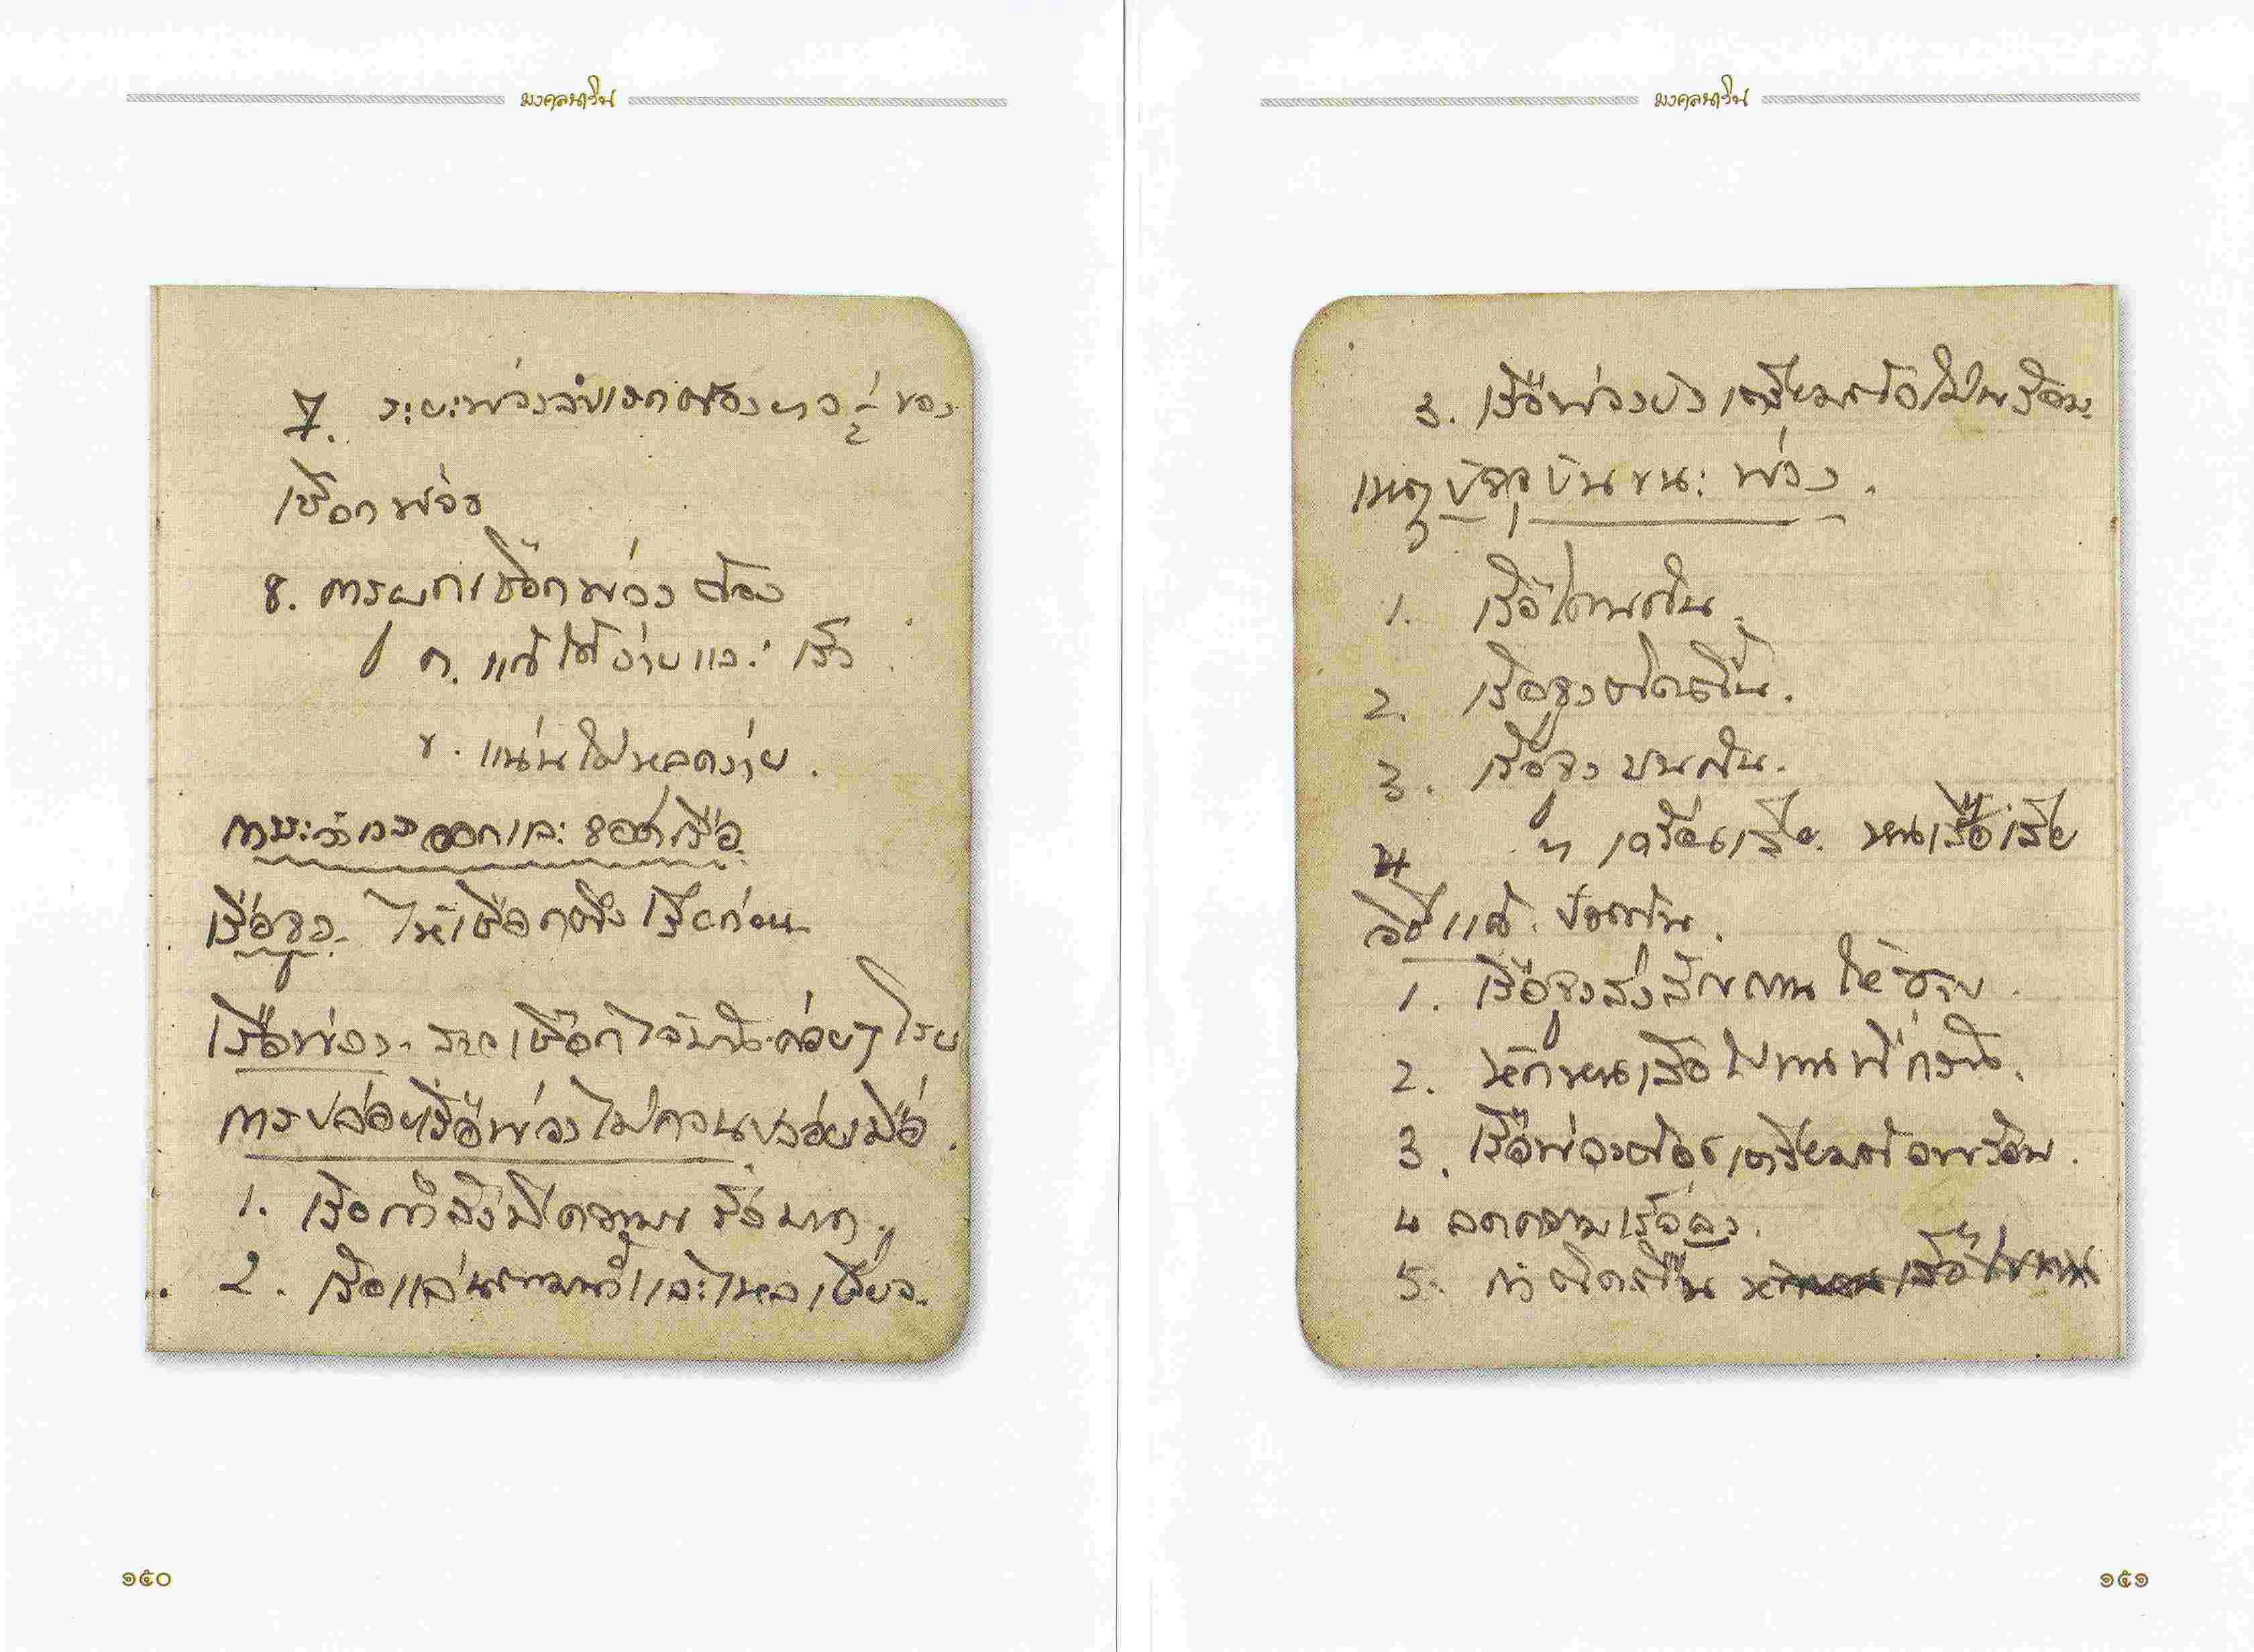 มงคลนาวิน
7. ระยะพ่วงลำแรกต้องยาว ½ ของ
เชือกพ่วง
8. การผูกเชือกพ่วง ต้อง
ก. แก้ได้ง่ายและเร็ว
ข. แน่นไม่หลุดง่าย.
ออกและ
เรือจูง. ให้เชือกตึง ก่อน
เรือพ่วง. เชือกไว้ ค่อยๆ
การปล่อยเรือพ่วงไม่ควรปล่อยเมื่อ.
1. เรือกำลังมีความเร็วมาก.
2. เรือแล่นตามน้ำและไหลเชี่ยว.
๑๕๐
มงคลนาวิน
3. เรือพ่วงยังเตรียมตัวไม่พร้อม.
เหตุปัจจุบันขณะพ่วง.
1. เรือโดนกัน.
2. เรือจูงติดตื้น.
3. เรือจูง ชนกัน.
4 ๆ เครื่องเสีย. เสีย
วิธีแก้. ป้องกัน.
1. เรือจูงส่งสัญญาณให้ทราบ.
2. หัก เรือไป
3. เรือพ่วงต้องเตรียมตัวพร้อม.
4 ลดความเร็วลง.
5. ถ้าติดตื้น
๑๕๑